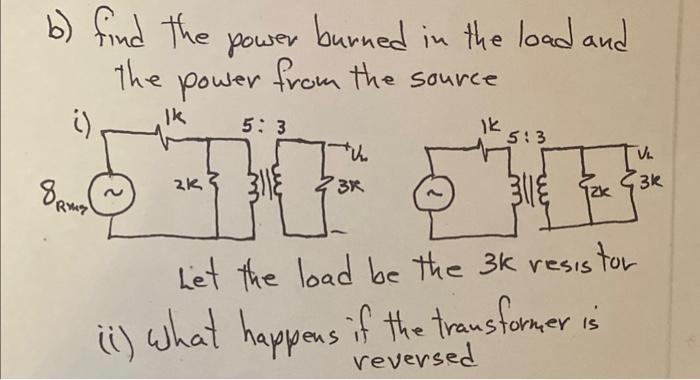 b) find the power burned in the load and
the power from the source
i) 1k 5:3 1k 5:3
8Rms ~ 2k 3k ~ 2k 3k VL
Let the load be the 3k resistor
ii) what happens if the transformer is
reversed